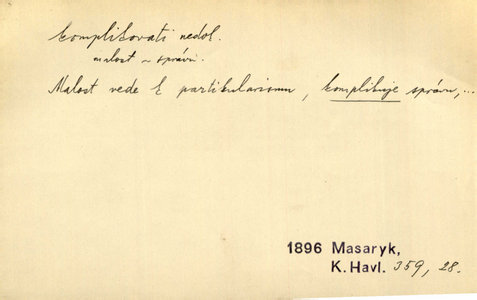 komplikovati nedok.
malost ~ správu.
Malost vede k partikularismu, komplikuje správu,...
1896 Masaryk,
K. Havl. 359, 28.